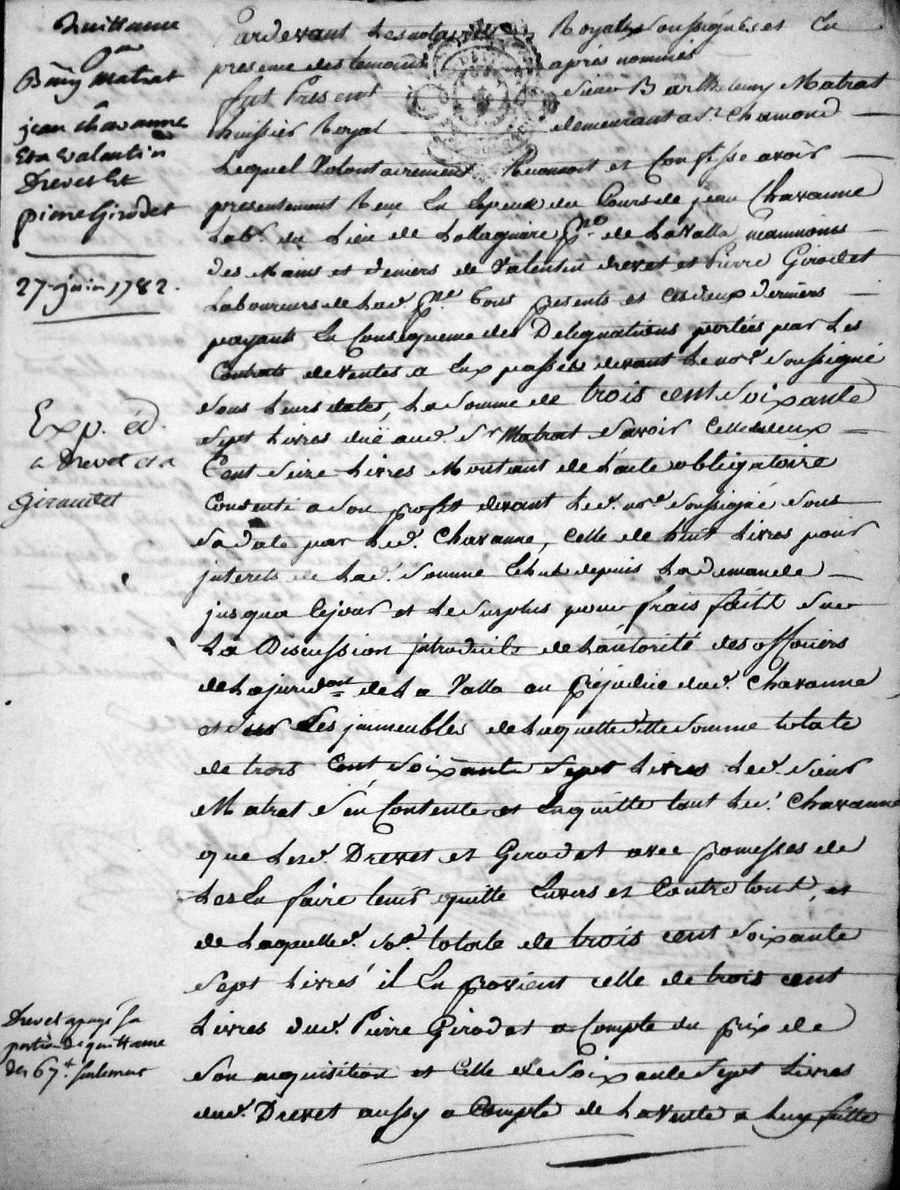 Quittance
Bmy Matrat
jean chavanne
Et a valantin
Drevet Et
pierre Girodet
27 juin 1782.
Exp. éd.
a Drevet et a
Giraudet
Drevet a payé sa
portion de quittance
des 67# seulement
Pardevant Les notaires Royaux Soussignés et En
presence des temoins après nommés
fut Present sieur Barthelemy Matrat
huissier Royal demeurant a St. Chamond
Lequel Volontairement Reconnoit et Confesse avoir
presentement Reçu En Especes du Cours de jean Chavanne
Labr. du Lieu de pse. de LaValla neanmoins
des Mains et deniers de Valentin drevet et Pierre Girodet
Laboureurs de Lad. pse. tous presents et ces deux derniers
payants En Consequence des Delegations portées par Les
Contrats de Ventes a Eux passés devant Le nore. Soussigné
sous Leurs dates, La Somme de trois cent Soixante
Sept Livres duë aud. Sr Matrat Savoir Celle de deux
Cent Seize Livres Montant de Lacte obligatoire
Consenti a Son profit devant Led. nore. Soussigné Sous
Sa date par Led. Chavanne, Celle de huit Livres pour
interets de Lad. Somme Echus depuis La demande
jusqua Cejour et Le Surplus pour frais faits Sur
La Discussion introduite de Lautorité des officiers
de La juridon. de La Valla au prejudice dud. Chavanne
et Sur Les immeubles de Laquelle ditte Somme totale
de trois Cent Soixante Sept Livres Led. Sieur
Matrat S'en Contente et En quitte tant Led. Chavanne
que Lesd. Drevet et Girodet avec promesses de
Les En faire tenir quitte Envers et Contre tous, et
de Laquelle d. Soe. totale de trois cent Soixante
Sept Livres il En provient celle de trois cent
Livres dud. Pierre Girodet a Compte du prix de
Son acquisition et Celle de Soixante Sept Livres
dud. Drevet aussy a Compte de La Vente a Luy faitte